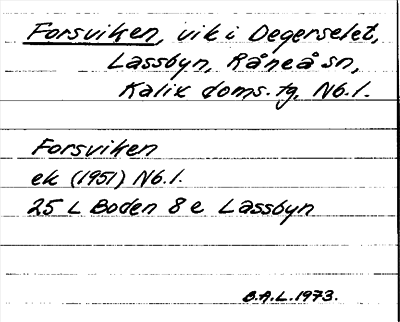 Forsviken, vik i Degerselet,
Lassbyn, Råneå sn,
Kalix doms. tg, Nb. l.
Forsviken
ek (1951) Nb. l.
25 L Boden 8 e Lassbyn
B.A.L. 1973.